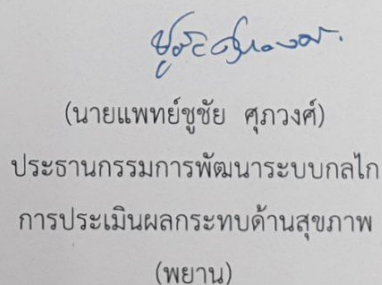 (นายแพทย์ชูชัย ศุภวงศ์)
ประธานกรรมการพัฒนาระบบกลไก
การประเมินผลกระทบด้านสุขภาพ
(พยาน)